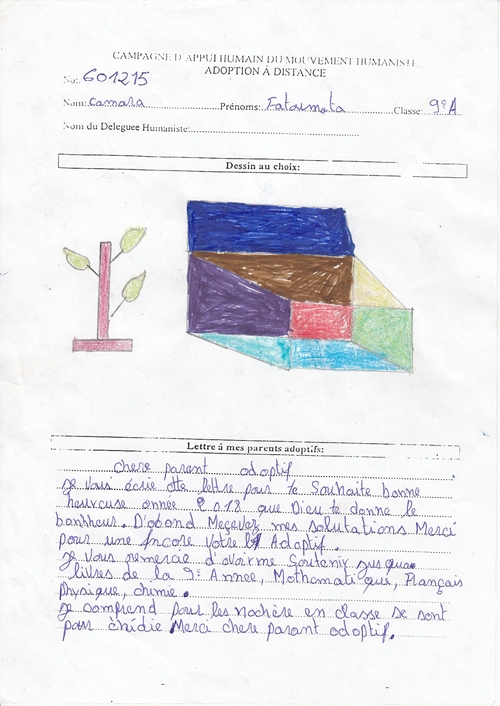 CAMPAGNE D'APPUI HUMAIN DU MOUVEMENT HUMANISTE
ADOPTION Á DISTANCE
No: 601215
Nom: Camara Prénoms: Fatoumata Classe: 9e A
Nom du Deleguee Humaniste:
Dessin au choix:
Lettre á mes parents adoptifs:
chere parent adoptif
je vous écrie cette lettre pour te Souhaite bonne
heureuse année 2018 que Dieu te donne le
bonhheur. D'abond Reçevez mes salutations Merci
pour une encore votre Adoptif.
je vous remercie d'avoirme Soutenir jusqua
livres de la 9e Annee, Mathematique, Français
Physique, chimie.
je comprend pour les matière en classe se sont
pour Merci chere parant adoptif.